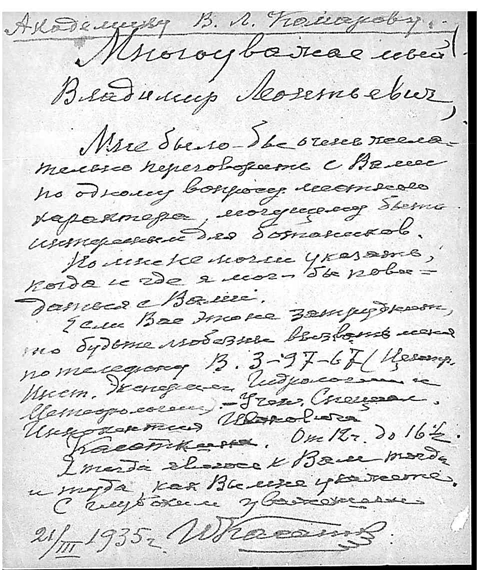 Академику В. Л. Комарову.
Многоуважаемый
Владимир Леонтьевич,
Мне было-бы очень жела-
тельно переговорить с Вами
по одному вопросу местного
характера, могущему быть
интересным для ботаников.
Но мне не могли указать,
когда и где я мог-бы пови-
даться с Вами.
Если Вас это не затруднит,
то будьте любезны вызвать меня
по телефону В. 3-97-67 (Центр.
Инст. Эксперим. Гидрологии и
Метеорологии). - Учен. Специал.
Иннокентия Ивановича
Касаткина. От 12 ч. до 16½.
Я тогда явлюсь к Вам тогда
и туда, как Вы мне укажете.
С глубоким уважением
21/III 1935 г. ИКасатк